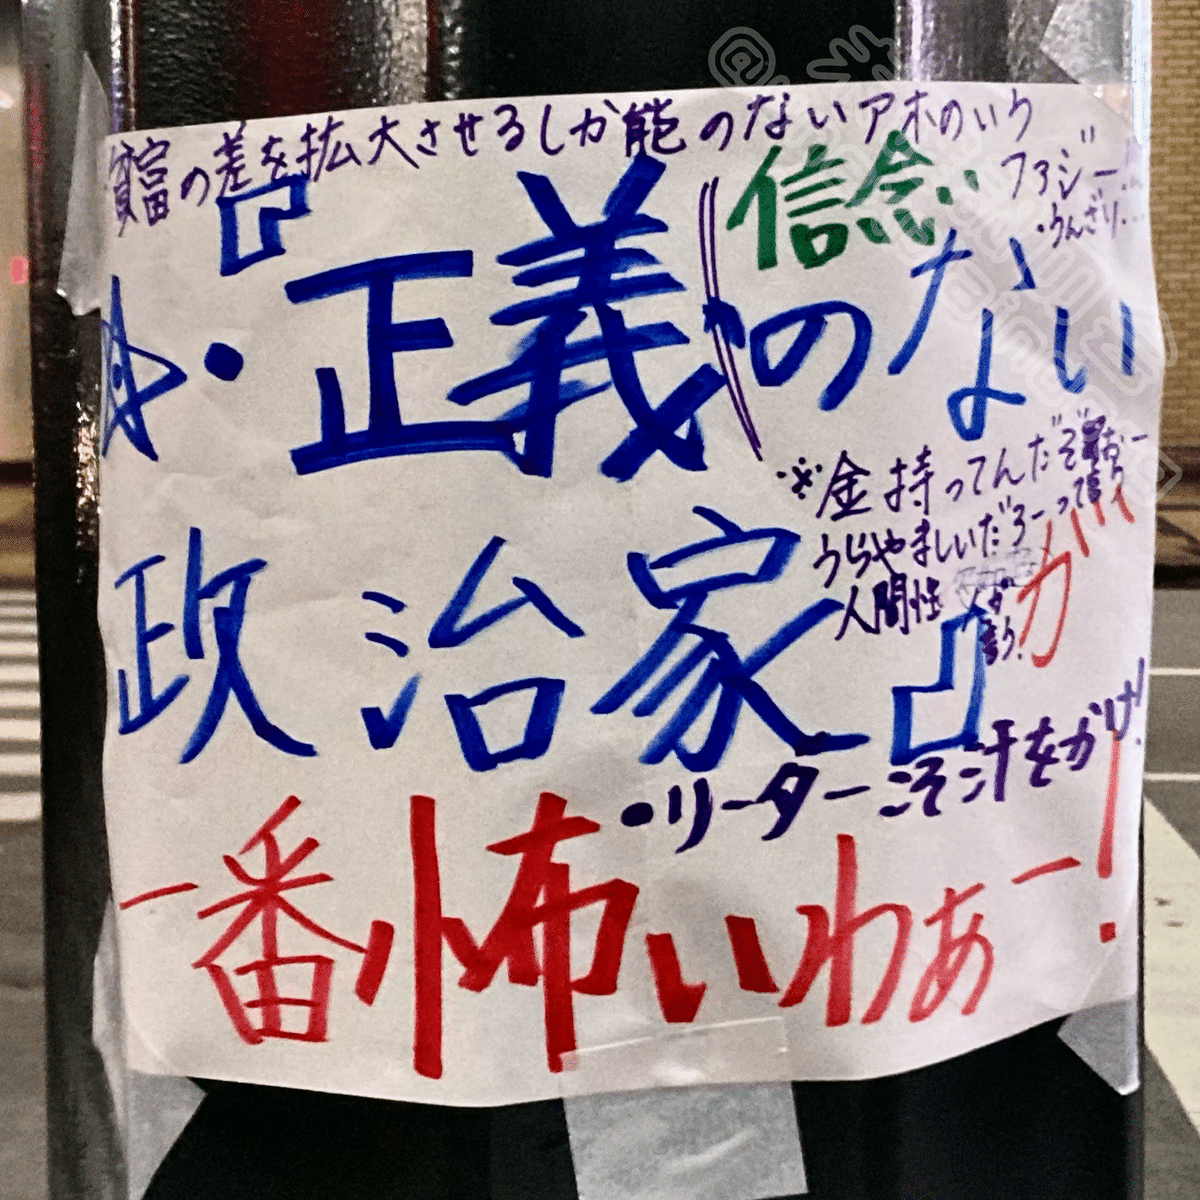 貧富の差を拡大させるしか能のないアホのいう
ファジー
・うんざり…
信念
・『正義のない
※金持ってんだぞ
うらやましいだろーって
人間性
政治家』が
・リーダーこそ汗をかけ!
一番怖いわぁー!